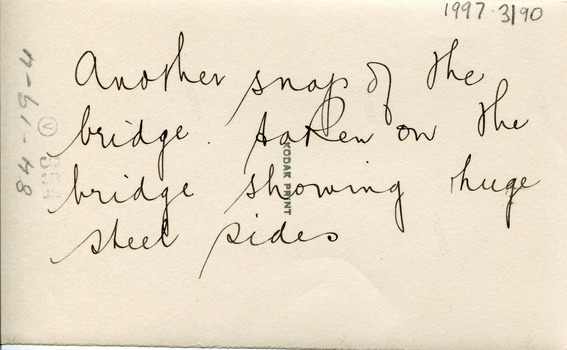 1997.3|90
Another snap of the
bridge. taken on the
bridge showing huge
steel sides
KODAK PRINT
48-19-4